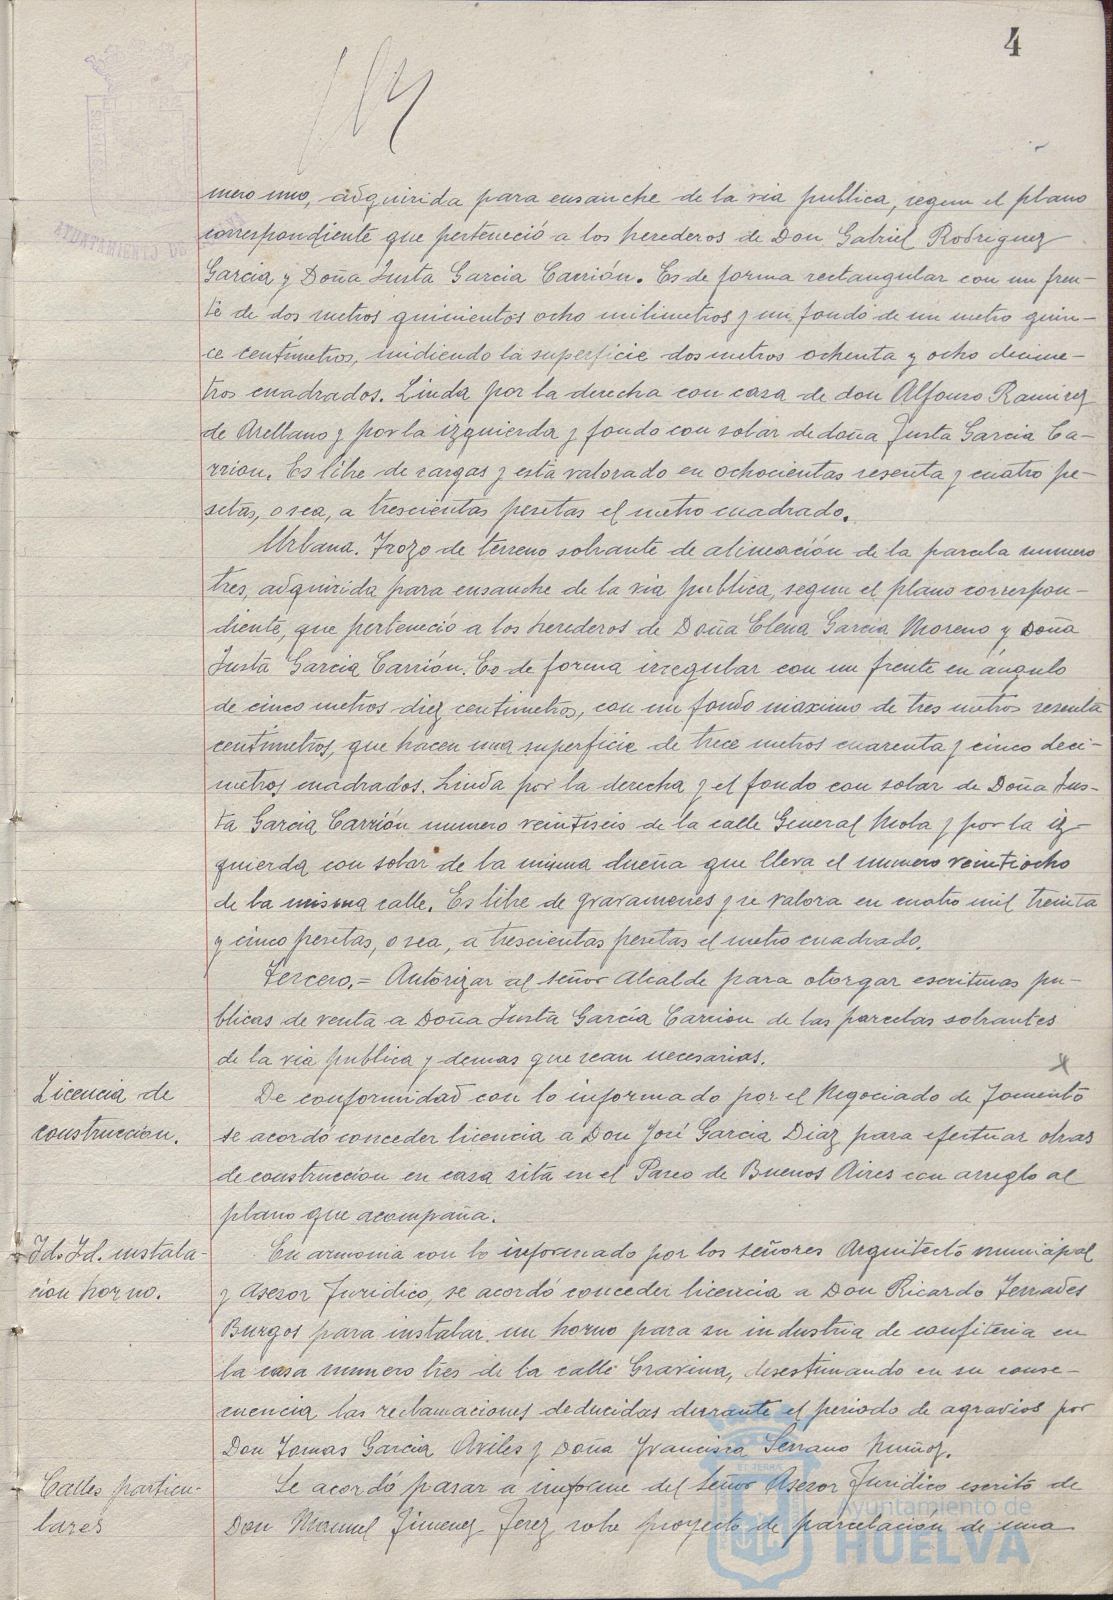 4
mero uno, adquirida para ensanche de la via publica, segun el plano
correspondiente que perteneció a los herederos de Don Gabriel Rodriguez
Garcia y Doña Justa Garcia Carrión. Es de forma rectangular con un fren-
te de dos metros quinientos ocho milimetros y un fondo de un metro quin-
ce centimetros, midiendo la superficie dos metros ochenta y ocho decime-
tros cuadrados. Linda por la derecha con casa de don Alfonso Ramirez
de Arellano y por la izquierda y fondo con solar de doña Justa Garcia Ca-
rrion. Es libre de cargas y está valorado en ochocientas sesenta y cuatro pe-
setas, o sea, a trescientas pesetas el metro cuadrado.
Urbana. Trozo de terreno sobrante de alineación de la parcela numero
tres, adquirida para ensanche de la via publica, segun el plano correspon-
diente, que perteneció a los herederos de Doña Elena Garcia Moreno y Doña
Justa Garcia Carrión. Es de forma irregular con un frente en ángulo
de cinco metros diez centimetros, con un fondo maximo de tres metros sesenta
centimetros, que hacen una superficie de trece metros cuarenta y cinco deci-
metros cuadrados. Linda por la derecha y el fondo con solar de Doña Jus-
ta Garcia Carrión numero veintiseis de la calle General Mola y por la iz-
quierda con solar de la misma dueña que lleva el numero veintiocho
de la misma calle. Es libre de gravamenes y se valora en cuatro mil treinta
y cinco pesetas, o sea, a trescientas pesetas el metro cuadrado.
Tercero.= Autorizar al señor Alcalde para otorgar escrituras pu-
blicas de venta a Doña Justa Garcia Carrion de las parcelas sobrantes
de la via publica y demas que sean necesarias.
Licencia de
construccion.
De conformidad con lo informado por el Negociado de Fomento
se acordó conceder licencia a Don José Garcia Diaz para efectuar obras
de construccion en casa sita en el Paseo de Buenos Aires con arreglo al
plano que acompaña.
Id. Id. instala-
ción horno.
En armonia con lo informado por los señores Arquitecto municipal
y Asesor Juridico, se acordó conceder licencia a Don Ricardo Terrades
Burgos para instalar un horno para su industria de confiteria en
la casa numero tres de la calle Gravina, desestimando en su conse-
cuencia las reclamaciones deducidas durante el periodo de agravios por
Don Tomas Garcia Aviles y Doña Francisca Serrano Muñoz.
Calles particu-
lares
Se acordó pasar a informe del señor Asesor Juridico escrito de
Don Manuel Jimenez Jerez sobre proyecto de parcelación de una
Ayuntamiento de
HUELVA